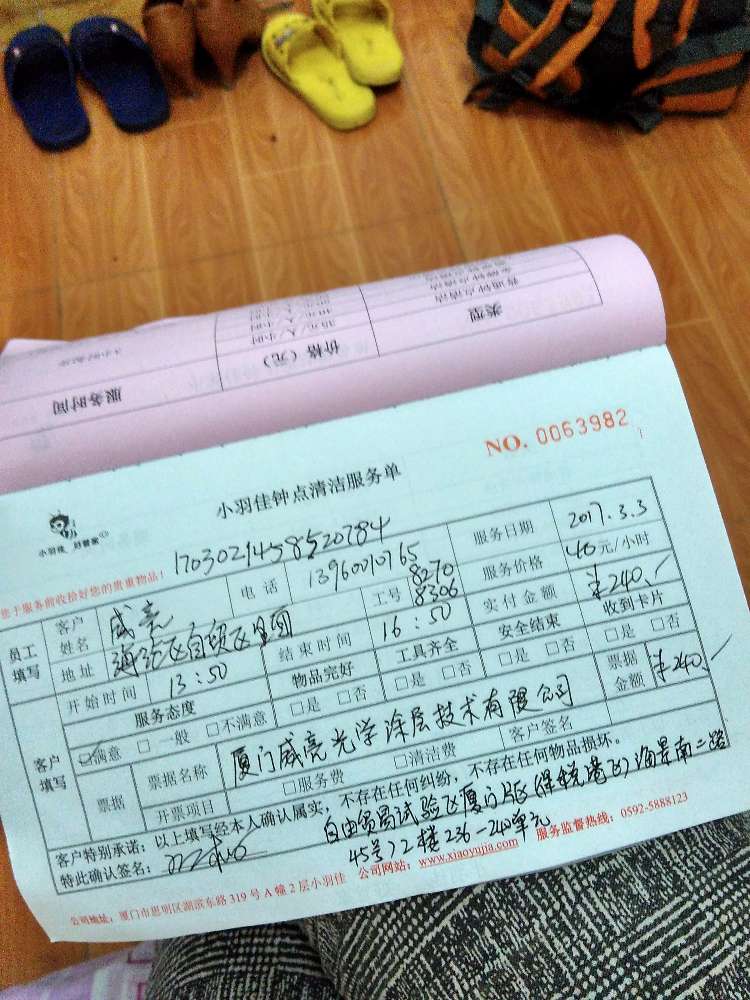 类型
普通钟点清洁
价格（元）
35元/人/小时
服务时间
NO. 0063982
小羽佳钟点清洁服务单
小羽佳 好管家
您于服务前收拾好您的贵重物品！
17030214585520784
服务日期 2017.3.3
员工填写
客户姓名 威亮
电话 13960010765
服务价格 40元/小时
地址
工号 8270 8306
实付金额 ¥240.-
开始时间 13:50
结束时间 16:50
安全结束 □是 □否
收到卡片 □是 □否
客户填写
服务态度 ☑满意 □一般 □不满意
物品完好 □是 □否
工具齐全 □是 □否
票据
票据名称 厦门威亮光学涂层技术有限公司
票据金额 ¥240.-
开票项目 □服务费 □清洁费
客户签名
客户特别承诺：以上填写经本人确认属实，不存在任何纠纷，不存在任何物品损坏。
特此确认签名：
自由贸易试验区厦门片区(保税港区)海景南二路
45号12楼236-240单元
公司网站：www.xiaoyujia.com 服务监督热线：0592-5888123
公司地址：厦门市思明区湖滨东路319号A幢2层小羽佳